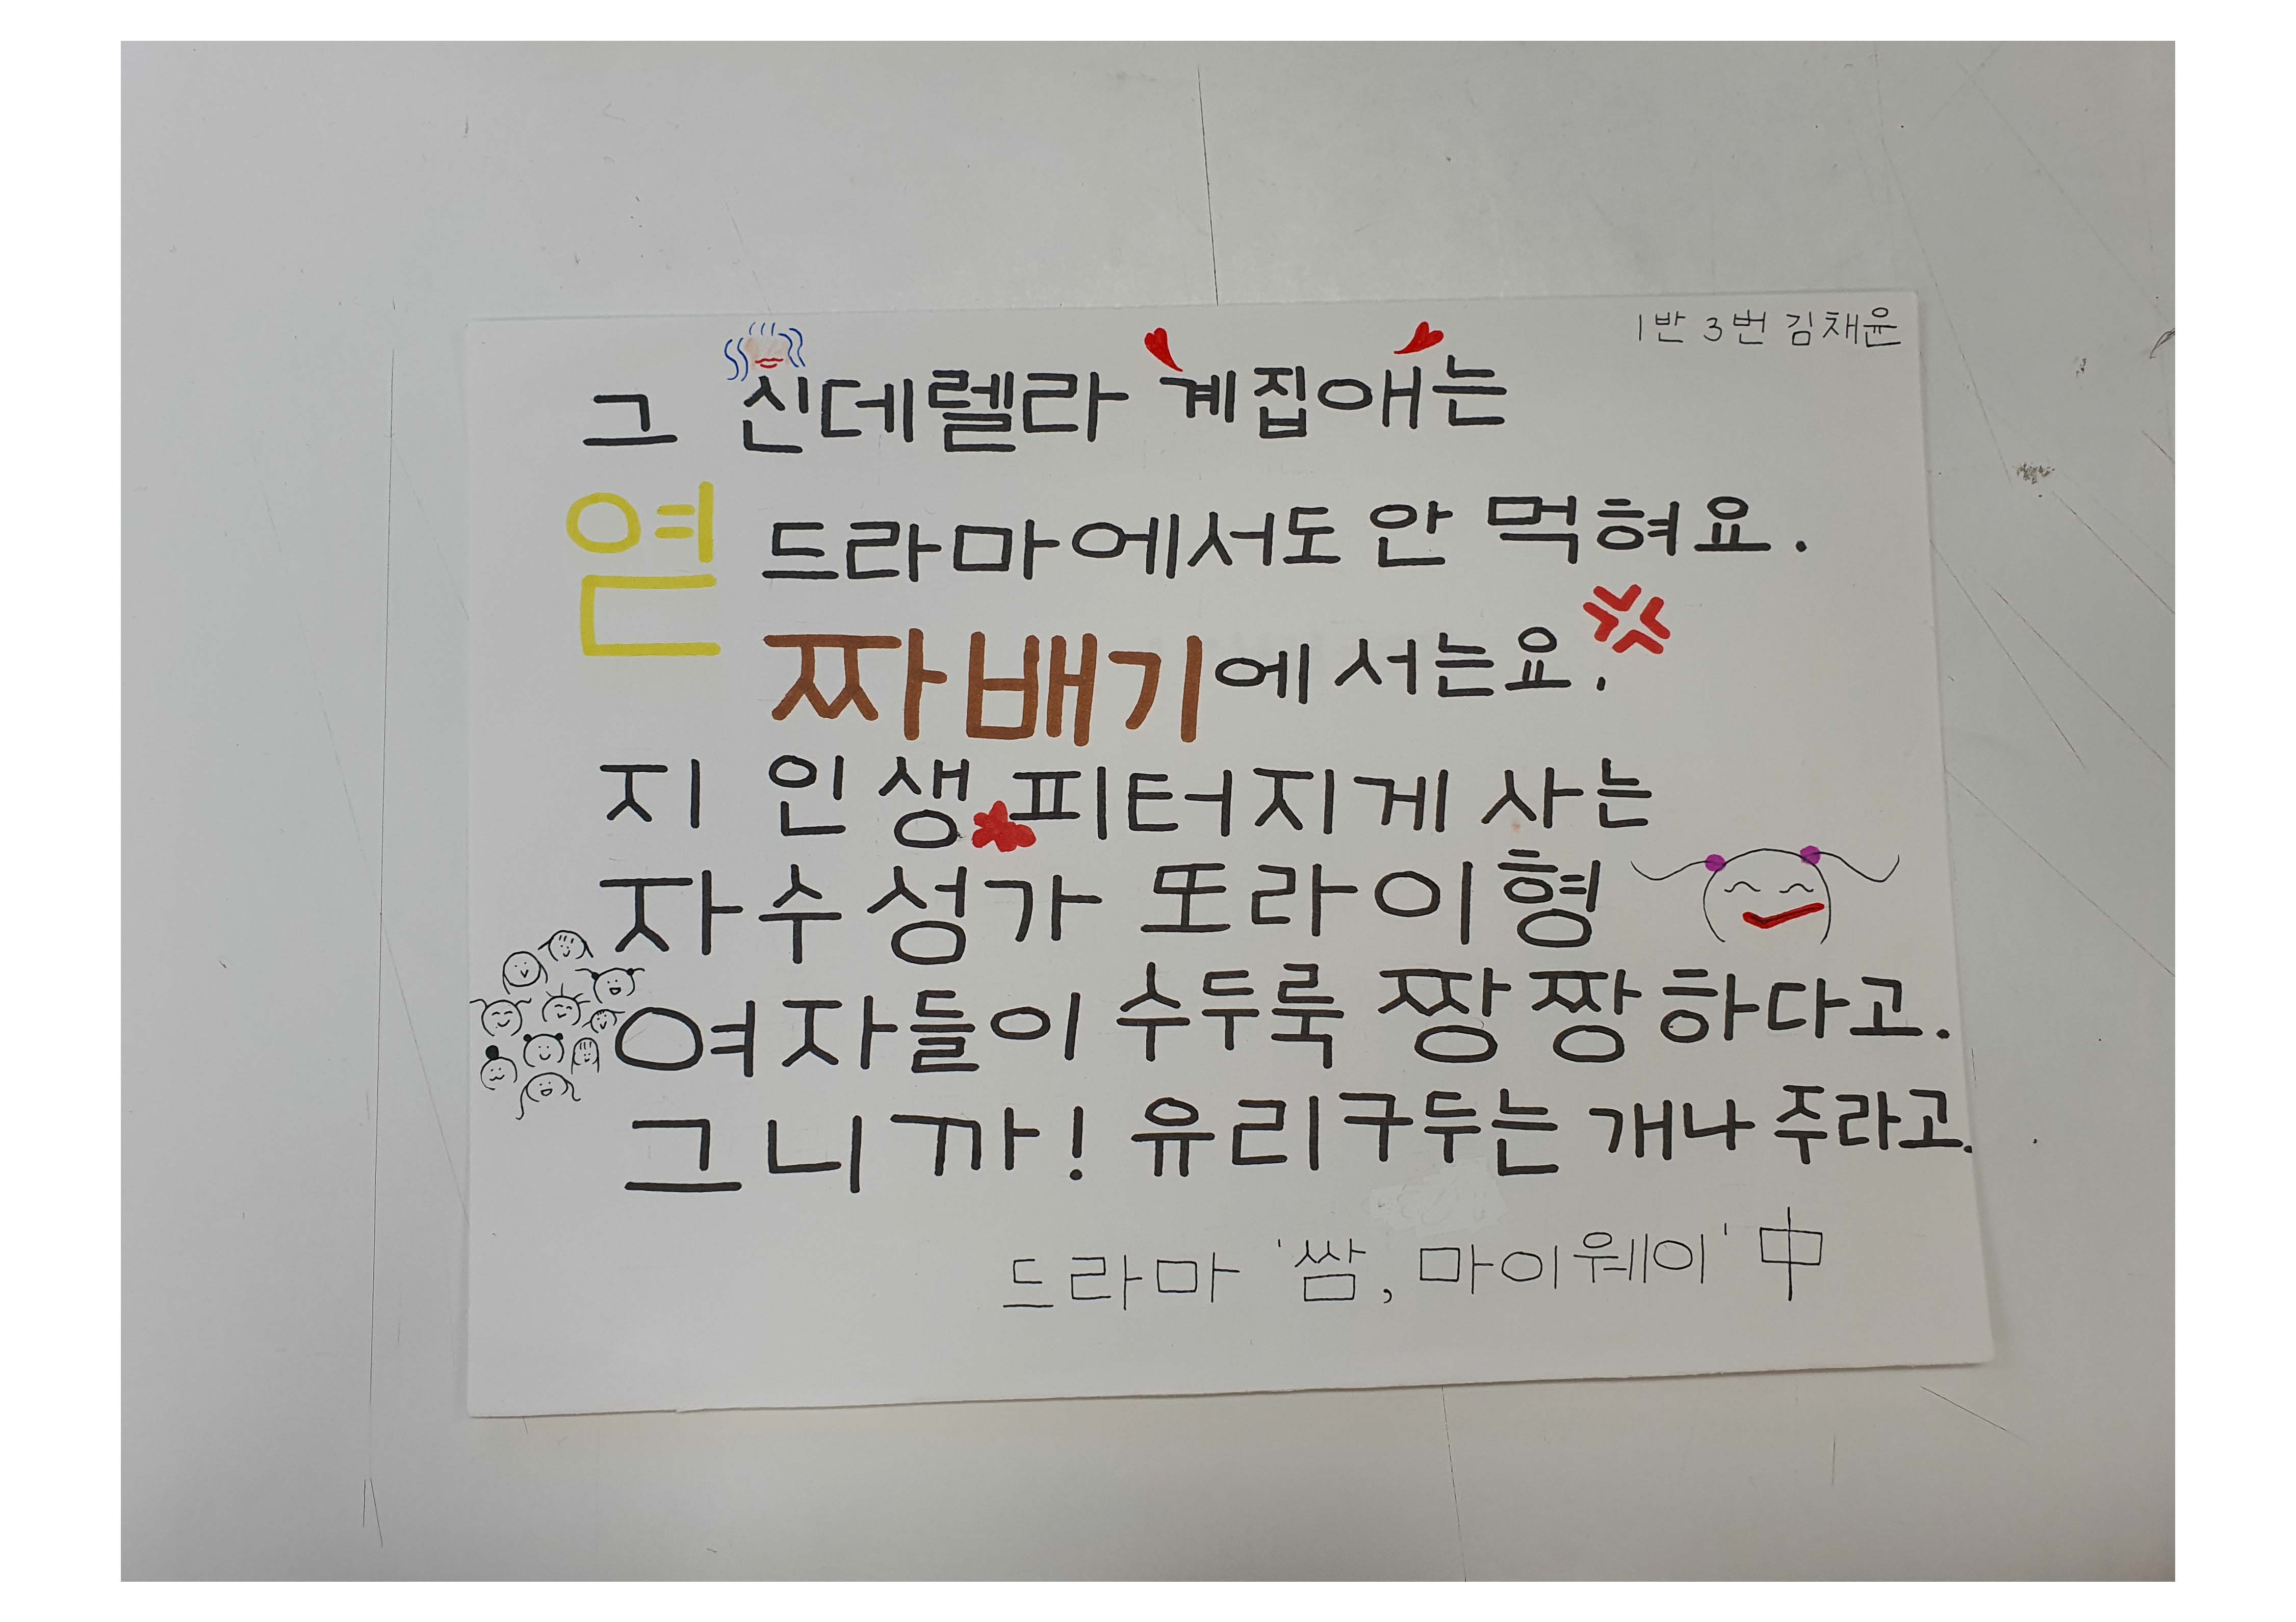 1반 3번 김채윤
그 신데렐라 계집애는
옅 드라마에서도 안 먹혀요.
짜배기에서는요.
지 인생 피터지게 사는
자수성가 또라이형
여자들이 수두룩 짱짱하다고.
그니까! 유리구두는 개나 주라고.
드라마 '쌈, 마이웨이' 中